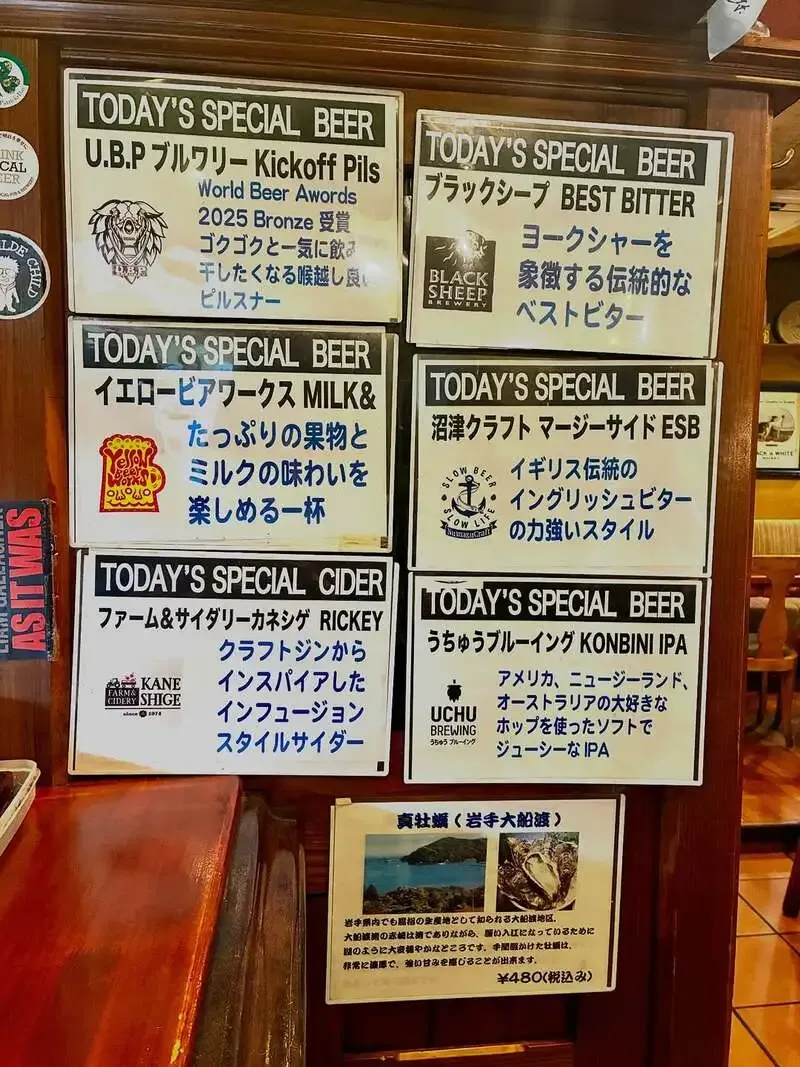 TODAY'S SPECIAL BEER
U.B.P ブルワリー Kickoff Pils
World Beer Awords
2025 Bronze 受賞
ゴクゴクと一気に飲み
干したくなる喉越し良い
ピルスナー
TODAY'S SPECIAL BEER
ブラックシープ BEST BITTER
BLACK
SHEEP
BREWERY
ヨークシャーを
象徴する伝統的な
ベストビター
TODAY'S SPECIAL BEER
イエロービアワークス MILK&
YELLOW
BEER
WORKS
たっぷりの果物と
ミルクの味わいを
楽しめる一杯
TODAY'S SPECIAL BEER
沼津クラフト マージーサイド ESB
SLOW BEER
SLOW LIFE
NumazuCraft
イギリス伝統の
イングリッシュビター
の力強いスタイル
TODAY'S SPECIAL CIDER
ファーム&サイダリーカネシゲ RICKEY
FARM&
CIDERY
KANE
SHIGE
since 1974
クラフトジンから
インスパイアした
インフュージョン
スタイルサイダー
TODAY'S SPECIAL BEER
うちゅうブルーイング KONBINI IPA
UCHU
BREWING
うちゅうブルーイング
アメリカ、ニュージーランド、
オーストラリアの大好きな
ホップを使ったソフトで
ジューシーなIPA
真牡蠣(岩手大船渡)
岩手県内でも屈指の生産地として知られる大船渡地区。
大船渡湾の赤崎は湾でありながら、深い入江になっているために
湖のように大変穏やかなところです。手間暇かけた牡蠣は、
非常に濃厚で、強い甘みを感じることが出来ます。
¥480(税込み)
AS IT WAS
LDE CHILD